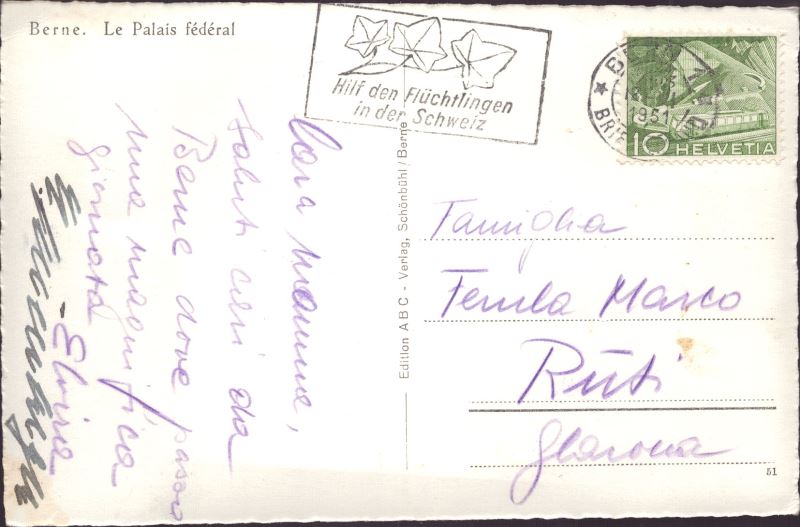 Berne. Le Palais fédéral
Hilf den Flüchtlingen
in der Schweiz
1951
10 HELVETIA
Cara mamma,
saluti cari da
Berna dove passo
una magnifica
giornata
Elvira
Edition ABC - Verlag, Schönbühl/Berne
Famiglia
Marco
Rüti
Glarona
51